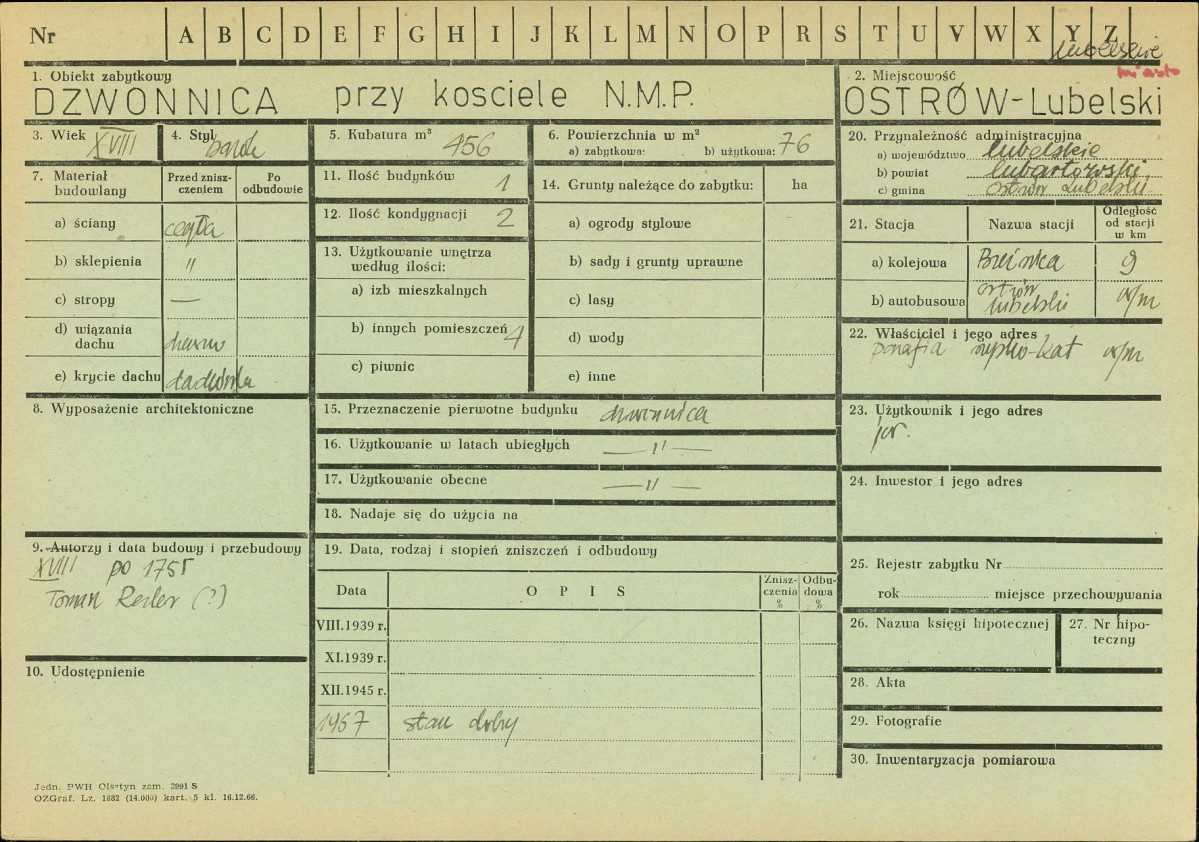 Nr A B C D E F G H I J K L M N O P R S T U V W X Y Z
lubelskie
miasto
1. Obiekt zabytkowy
DZWONNICA przy kosciele N.M.P.
2. Miejscowość
OSTRÓW-Lubelski
3. Wiek XVIII
4. Styl barok
5. Kubatura m³ 456
6. Powierzchnia w m²
a) zabytkowa: b) użytkowa: 76
7. Materiał budowlany
Przed znisz-
czeniem
Po
odbudowie
a) ściany cegła
b) sklepienia "
c) stropy —
d) wiązania
dachu drewno
e) krycie dachu dachówka
8. Wyposażenie architektoniczne
9. Autorzy i data budowy i przebudowy
XVIII po 1755
Tomasz Rezler (?)
10. Udostępnienie
11. Ilość budynków 1
12. Ilość kondygnacji 2
13. Użytkowanie wnętrza
według ilości:
a) izb mieszkalnych
b) innych pomieszczeń 4
c) piwnic
14. Grunty należące do zabytku: ha
a) ogrody stylowe
b) sady i grunty uprawne
c) lasy
d) wody
e) inne
15. Przeznaczenie pierwotne budynku dzwonnica
16. Użytkowanie w latach ubiegłych — " —
17. Użytkowanie obecne — " —
18. Nadaje się do użycia na
19. Data, rodzaj i stopień zniszczeń i odbudowy
Data OPIS
Znisz-
czenia
%
Odbu-
dowa
%
VIII.1939 r.
XI.1939 r.
XII.1945 r.
1967 stan dobry
20. Przynależność administracyjna
a) województwo lubelskie
b) powiat lubartowski
c) gmina Ostrów Lubelski
21. Stacja Nazwa stacji
Odległość
od stacji
w km
a) kolejowa Brzeźnica 9
b) autobusowa Ostrów
Lubelski w/m
22. Właściciel i jego adres
parafia rzymsko-kat w/m
23. Użytkownik i jego adres
jw.
24. Inwestor i jego adres
25. Rejestr zabytku Nr
rok miejsce przechowywania
26. Nazwa księgi hipotecznej
27. Nr hipo-
teczny
28. Akta
29. Fotografie
30. Inwentaryzacja pomiarowa
Jedn. PWH Olsztyn zam. 3991 S
OZGraf. Lz. 1882 (14.000) kart. 5 kl. 16.12.66.